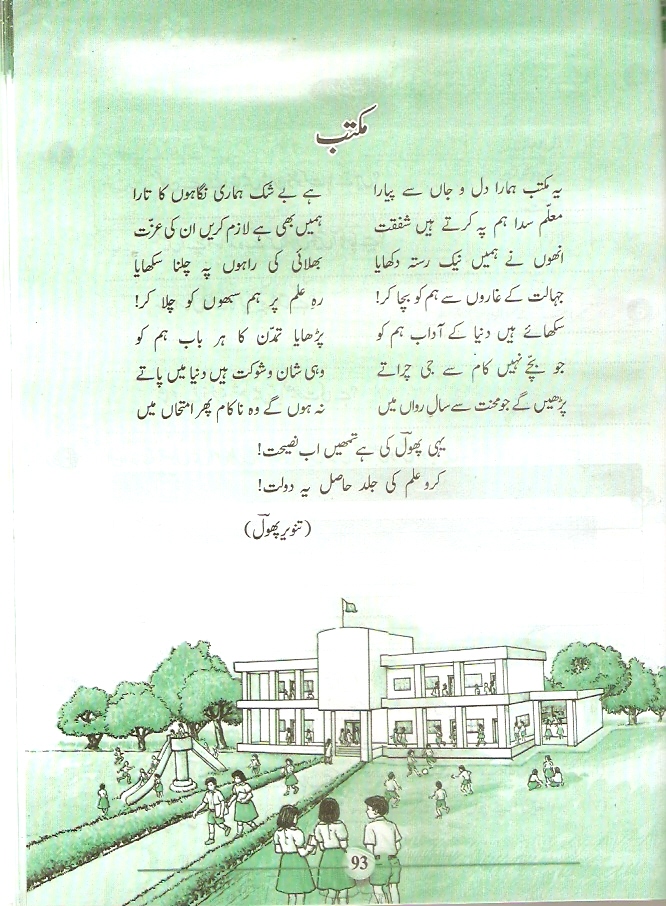 مکتب
یہ مکتب ہمارا دل و جاں سے پیارا ہے بے شک ہماری نگاہوں کا تارا
معلّم سدا ہم پہ کرتے ہیں شفقت ہمیں بھی ہے لازم کریں ان کی عزّت
انھوں نے ہمیں نیک رستہ دکھایا بھلائی کی راہوں پہ چلنا سکھایا
جہالت کے غاروں سے ہم کو بچا کر! رہِ علم پر ہم سبھوں کو چلا کر!
سکھائے ہیں دنیا کے آداب ہم کو پڑھایا تمدّن کا ہر باب ہم کو
جو بچّے نہیں کام سے جی چراتے وہی شان و شوکت ہیں دنیا میں پاتے
پڑھیں گے جو محنت سے سالِ رواں میں نہ ہوں گے وہ ناکام پھر امتحاں میں
یہی پھولؔ کی ہے تمھیں اب نصیحت!
کرو علم کی جلد حاصل یہ دولت!
(تنویر پھولؔ)
93